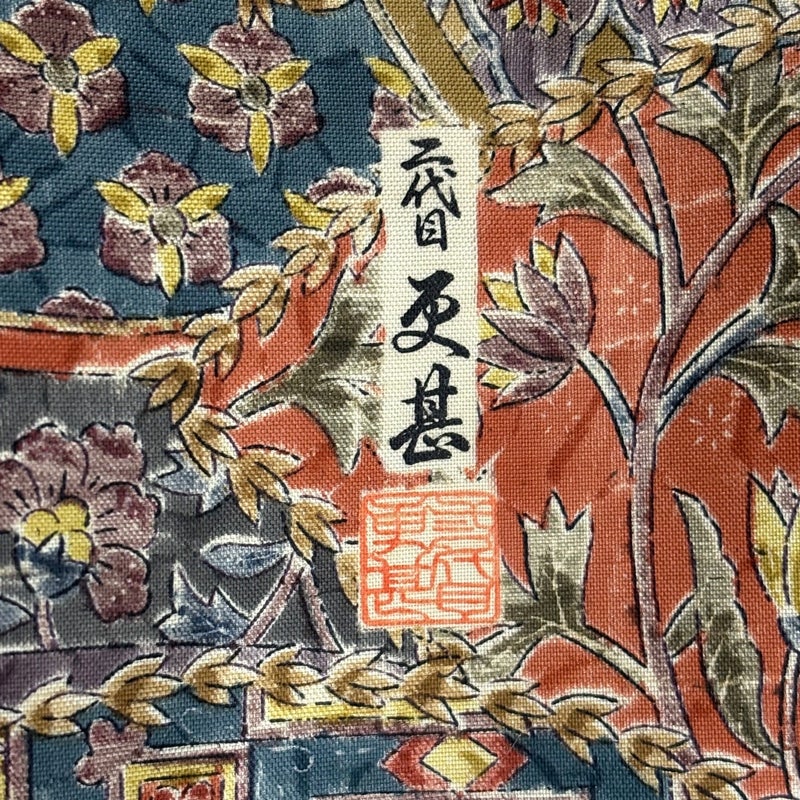 二代目 更甚